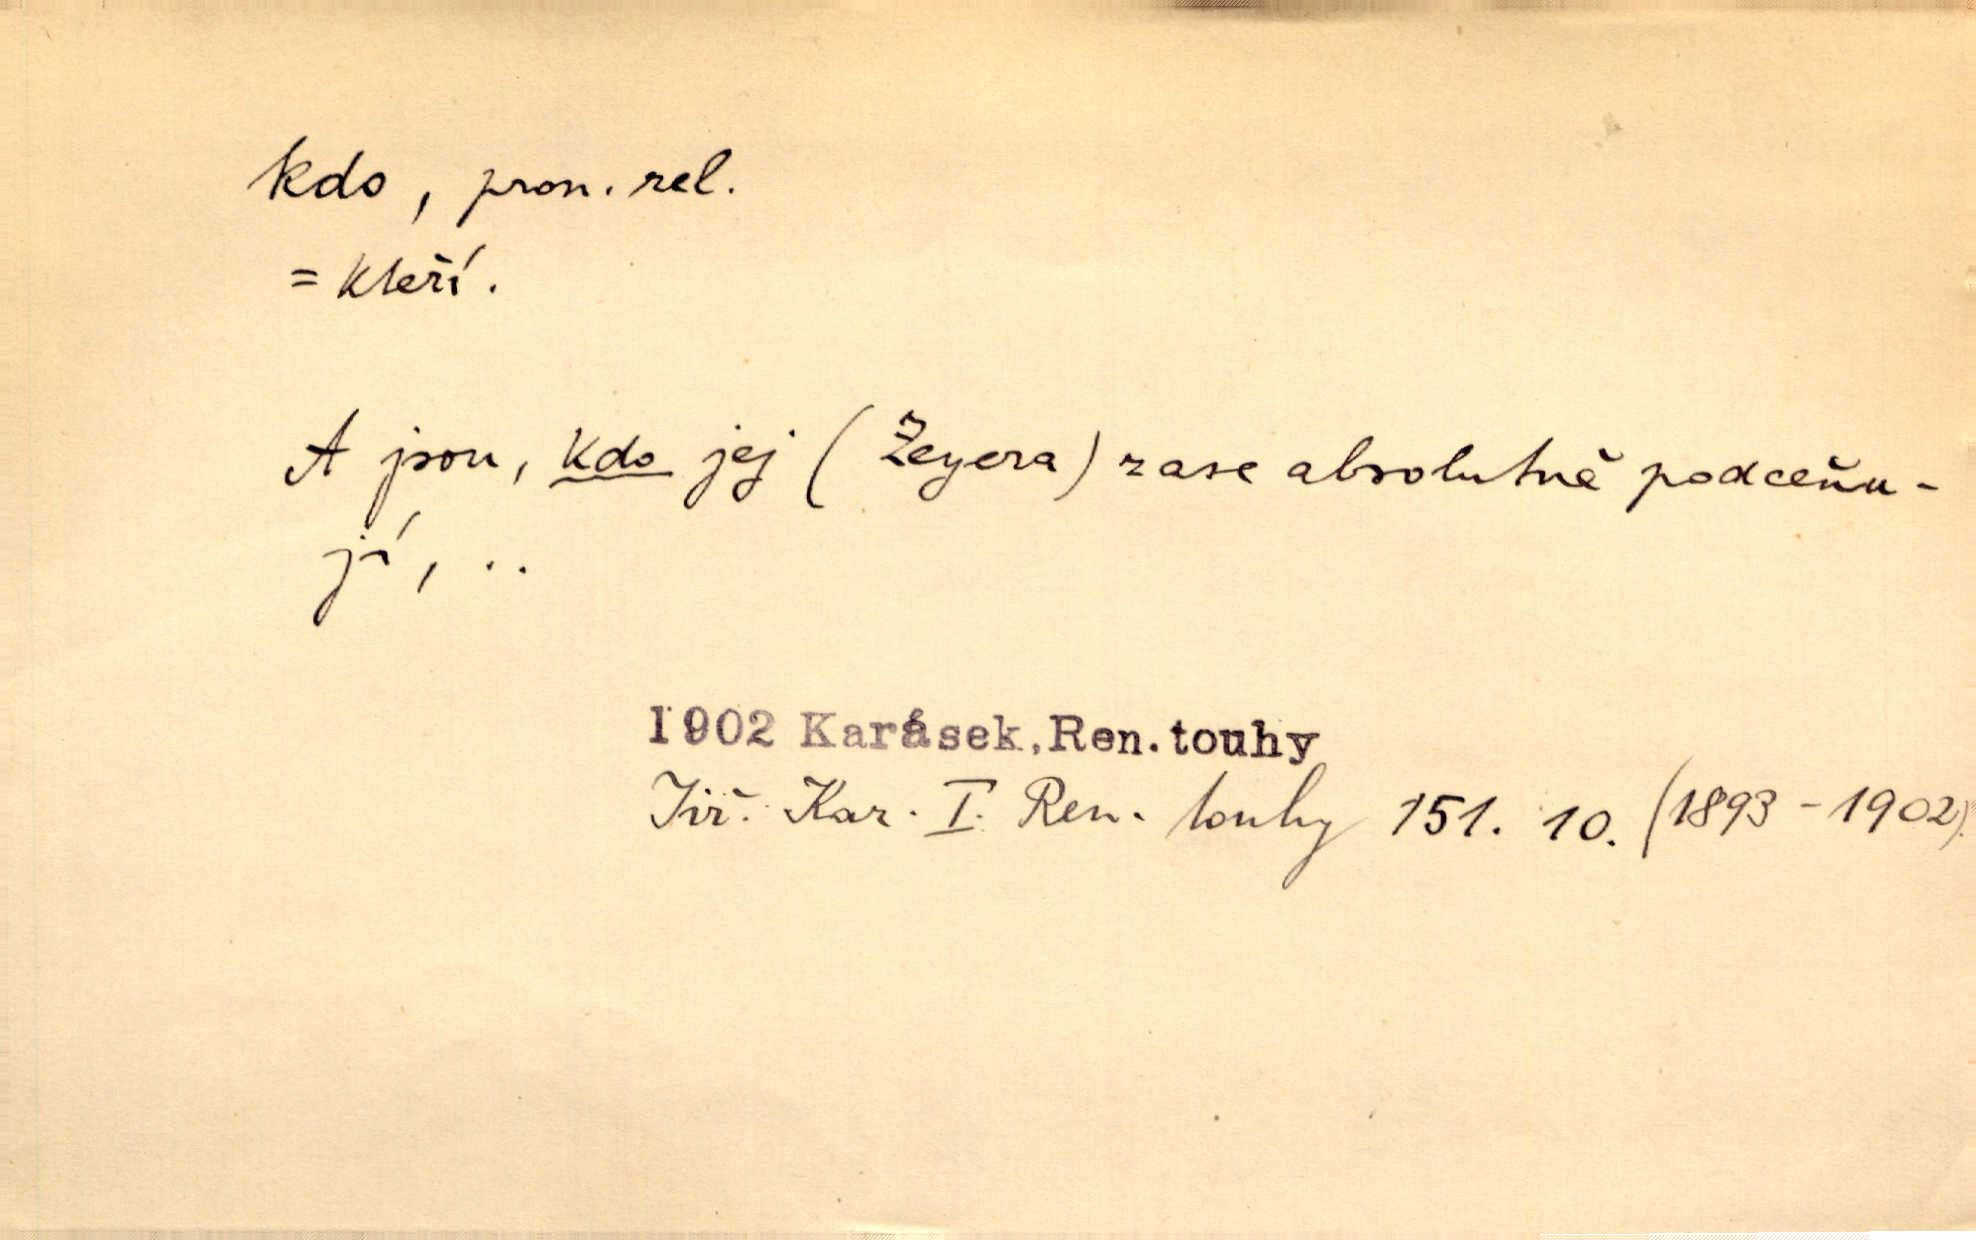 kdo, pron. rel.
= kteří.
A jsou, kdo jej (Zeyera) zase absolutně podceňu-
jí, ..
1902 Karásek, Ren. touhy
Jiř. Kar. I. Ren. touhy 151. 10. (1893 - 1902).